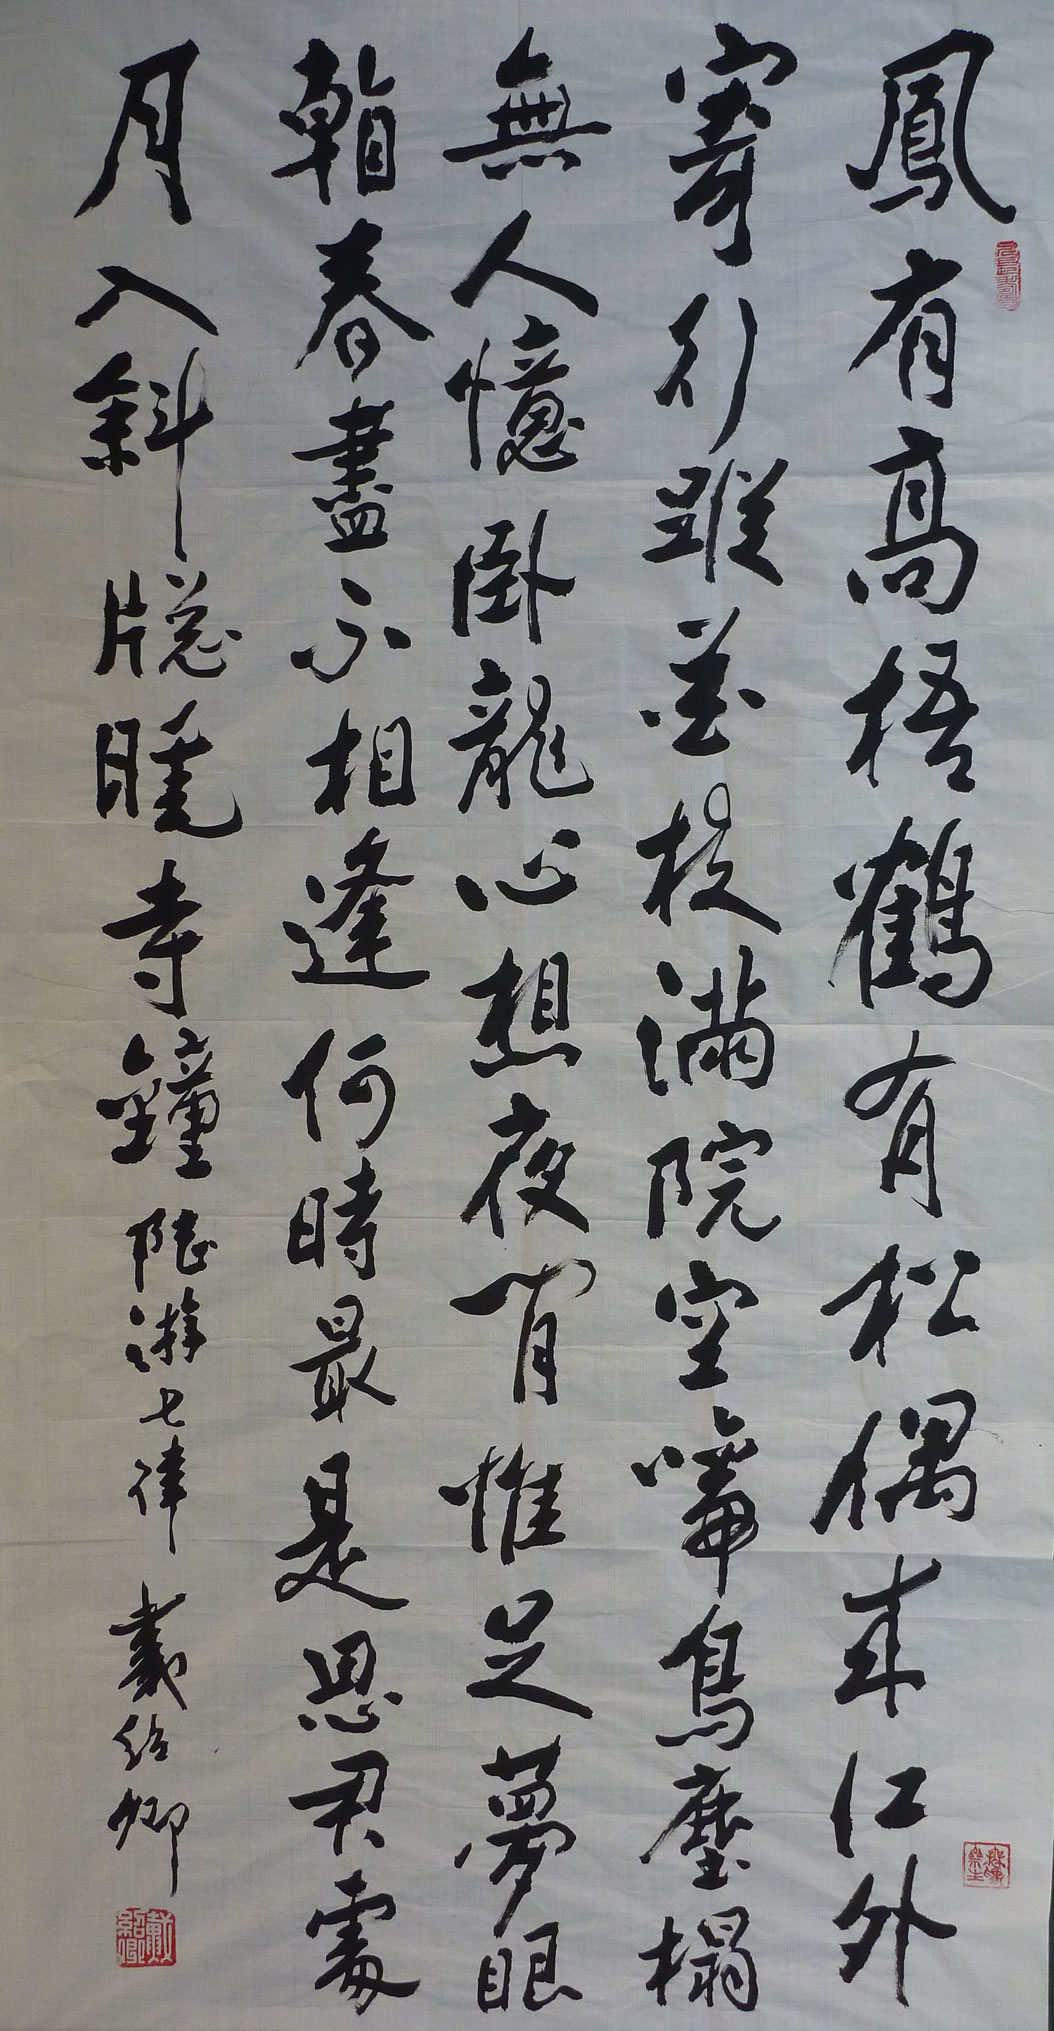 鳳有高梧鶴有松偶來江外
寄行蹤花枝滿院空啼鳥塵榻
無人憶臥龍心想夜閒惟足夢眼
看春盡不相逢何時最是思君處
月入斜牕曉寺鐘 陸游七律 戴紹卿
戴紹卿